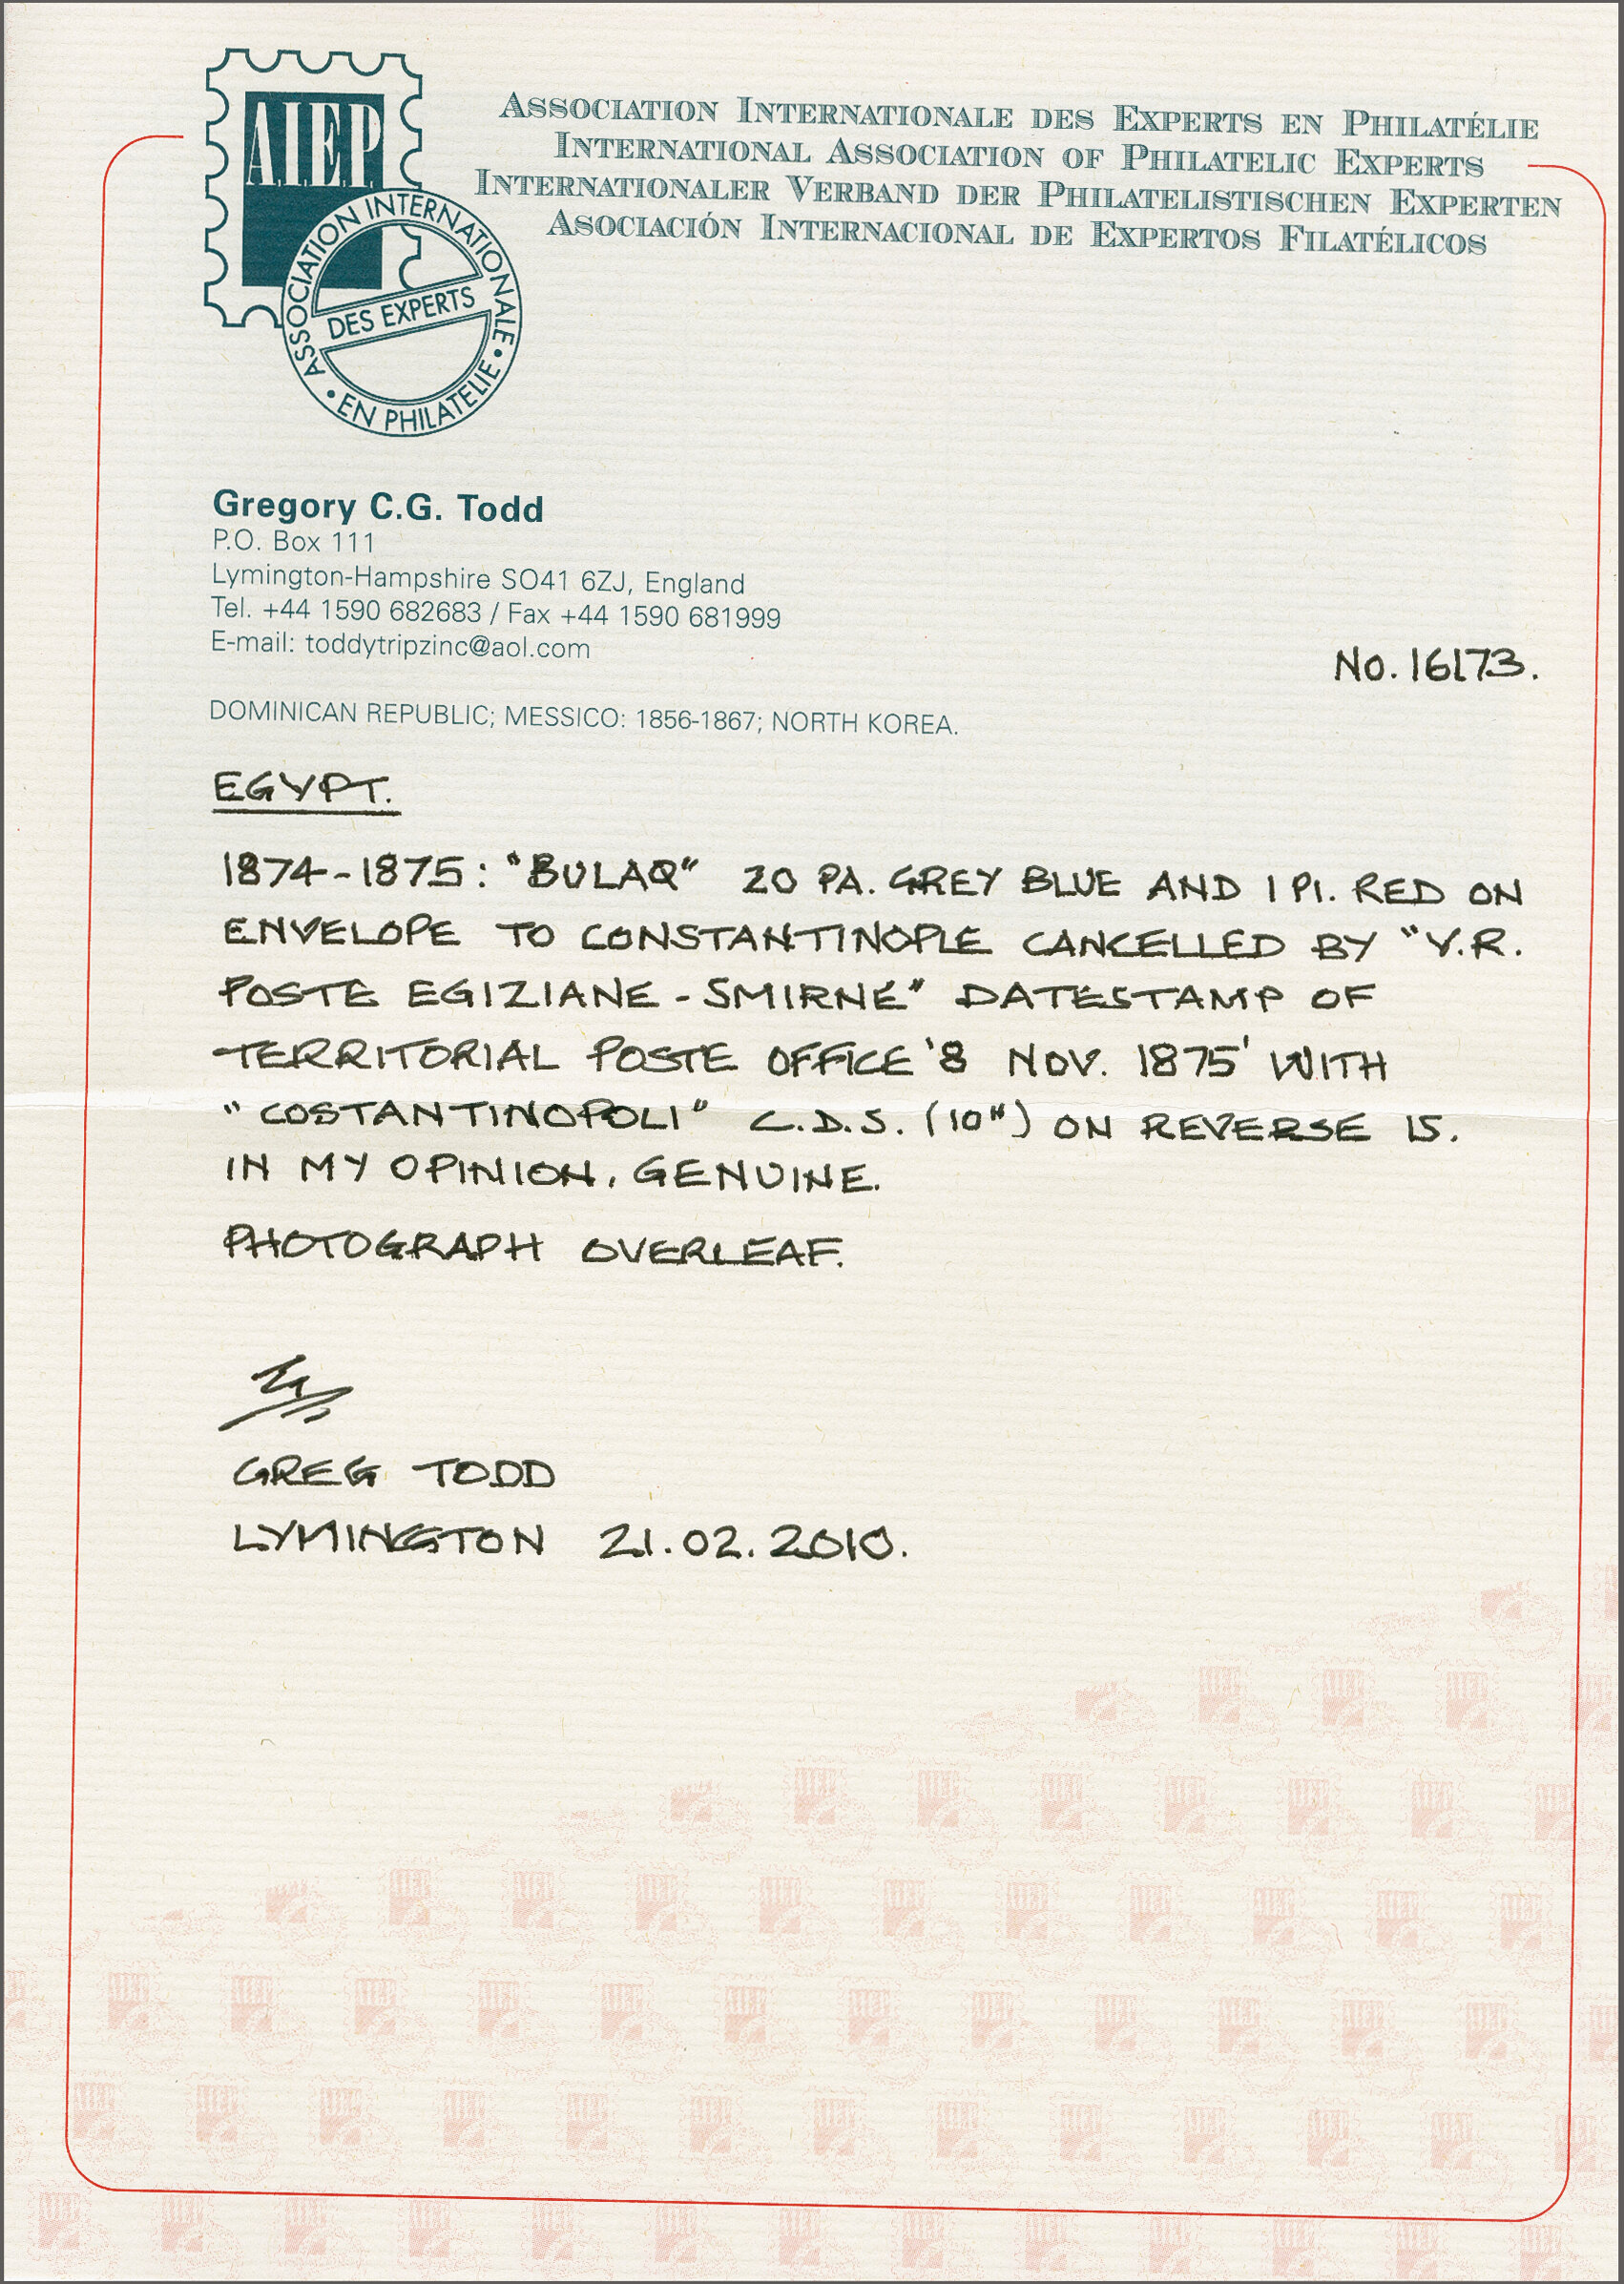 A.I.E.P.
ASSOCIATION INTERNATIONALE
DES EXPERTS
EN PHILATELIE
ASSOCIATION INTERNATIONALE DES EXPERTS EN PHILATÉLIE
INTERNATIONAL ASSOCIATION OF PHILATELIC EXPERTS
INTERNATIONALER VERBAND DER PHILATELISTISCHEN EXPERTEN
ASOCIACIÓN INTERNACIONAL DE EXPERTOS FILATÉLICOS
Gregory C.G. Todd
P.O. Box 111
Lymington-Hampshire SO41 6ZJ, England
Tel. +44 1590 682683 / Fax +44 1590 681999
E-mail: toddytripzinc@aol.com
No. 16173.
DOMINICAN REPUBLIC; MESSICO: 1856-1867; NORTH KOREA.
EGYPT.
1874-1875: "BULAQ" 20 PA. GREY BLUE AND 1 PI. RED ON
ENVELOPE TO CONSTANTINOPLE CANCELLED BY "V.R.
POSTE EGIZIANE - SMIRNE" DATESTAMP OF
TERRITORIAL POSTE OFFICE '8 NOV. 1875' WITH
"COSTANTINOPOLI" C.D.S. (10") ON REVERSE IS.
IN MY OPINION, GENUINE.
PHOTOGRAPH OVERLEAF.
GREG TODD
LYMINGTON 21.02.2010.